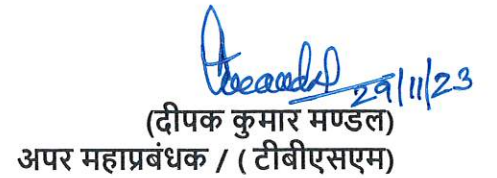 29/11/23
(दीपक कुमार मण्डल)
अपर महाप्रबंधक / ( टीबीएसएम)